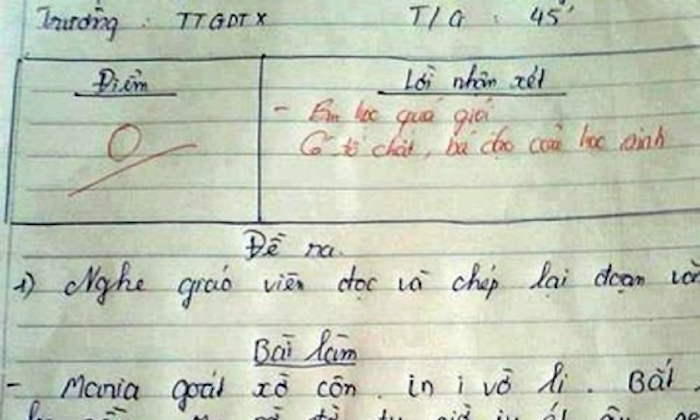 Trường : TTGDTX T/G : 45'
Điểm Lời nhận xét
- Em học quá giỏi
0 Có tố chất, bá đạo của học sinh
Đề ra.
1) Nghe giáo viên đọc và chép lại đoạn văn
Bài làm
- Mania goát xờ côn . in i vờ li . Bát